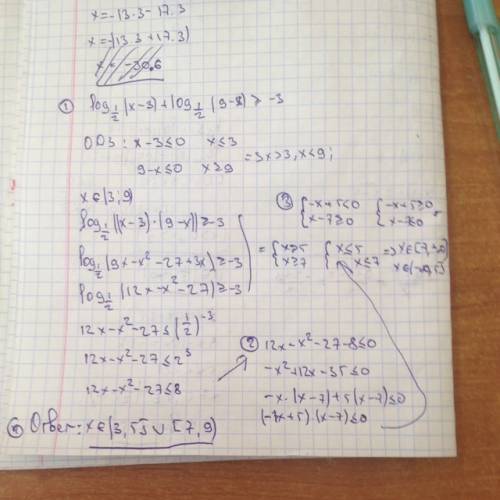 x=-13.3-17.3
x=-(13.3+17.3)
x=-30.6
① log½(x-3)+log½(9-x)≥-3
ОДЗ: x-3≤0 x≤3
9-x≤0 x≥9
=>x>3, x<9;
x∈(3;9)
log½((x-3)·(9-x))≥-3
log½(9x-x²-27+3x)≥-3
log½(12x-x²-27)≥-3
12x-x²-27≤(½)⁻³
12x-x²-27≤2³
12x-x²-27≤8
② 12x-x²-27-8≤0
-x²+12x-35≤0
-x·(x-7)+5(x-7)≤0
(-x+5)·(x-7)≤0
③ {-x+5≤0 {-x+5≥0
x-7≥0 x-7≤0
= {x≥5 {x≤5 => x∈[7,+∞)
x≥7 x≤7 x∈(-∞,5]
Ответ: x∈(3,5]∪[7,9)